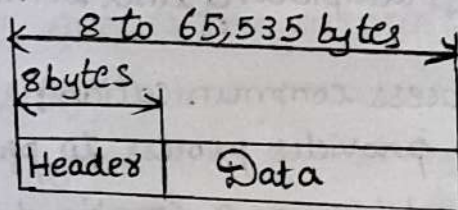 8 to 65,535 bytes
8bytes
Header Data